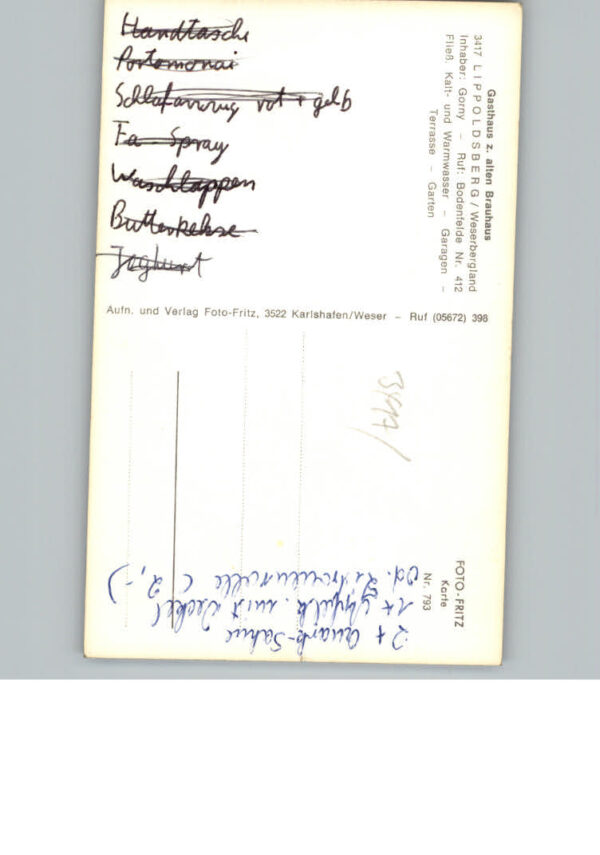 Handtasche
Portomonai
Schlafanzug rot + gelb
Fa Spray
Waschlappen
Butterkekse
Joghurt
Gasthaus z. alten Brauhaus
3417 LIPPOLDSBERG / Weserbergland
Inhaber: Gorny – Ruf: Bodenfelde Nr. 412
Fließ. Kalt- und Warmwasser – Garagen –
Terrasse – Garten
Aufn. und Verlag Foto-Fritz, 3522 Karlshafen/Weser – Ruf (05672) 398
3417/
FOTO-FRITZ
Karte
Nr. 793
2 x Quark-Sahne
1 x Apfelk. mit Deckel
od. Zitronenrolle ( 2,-)